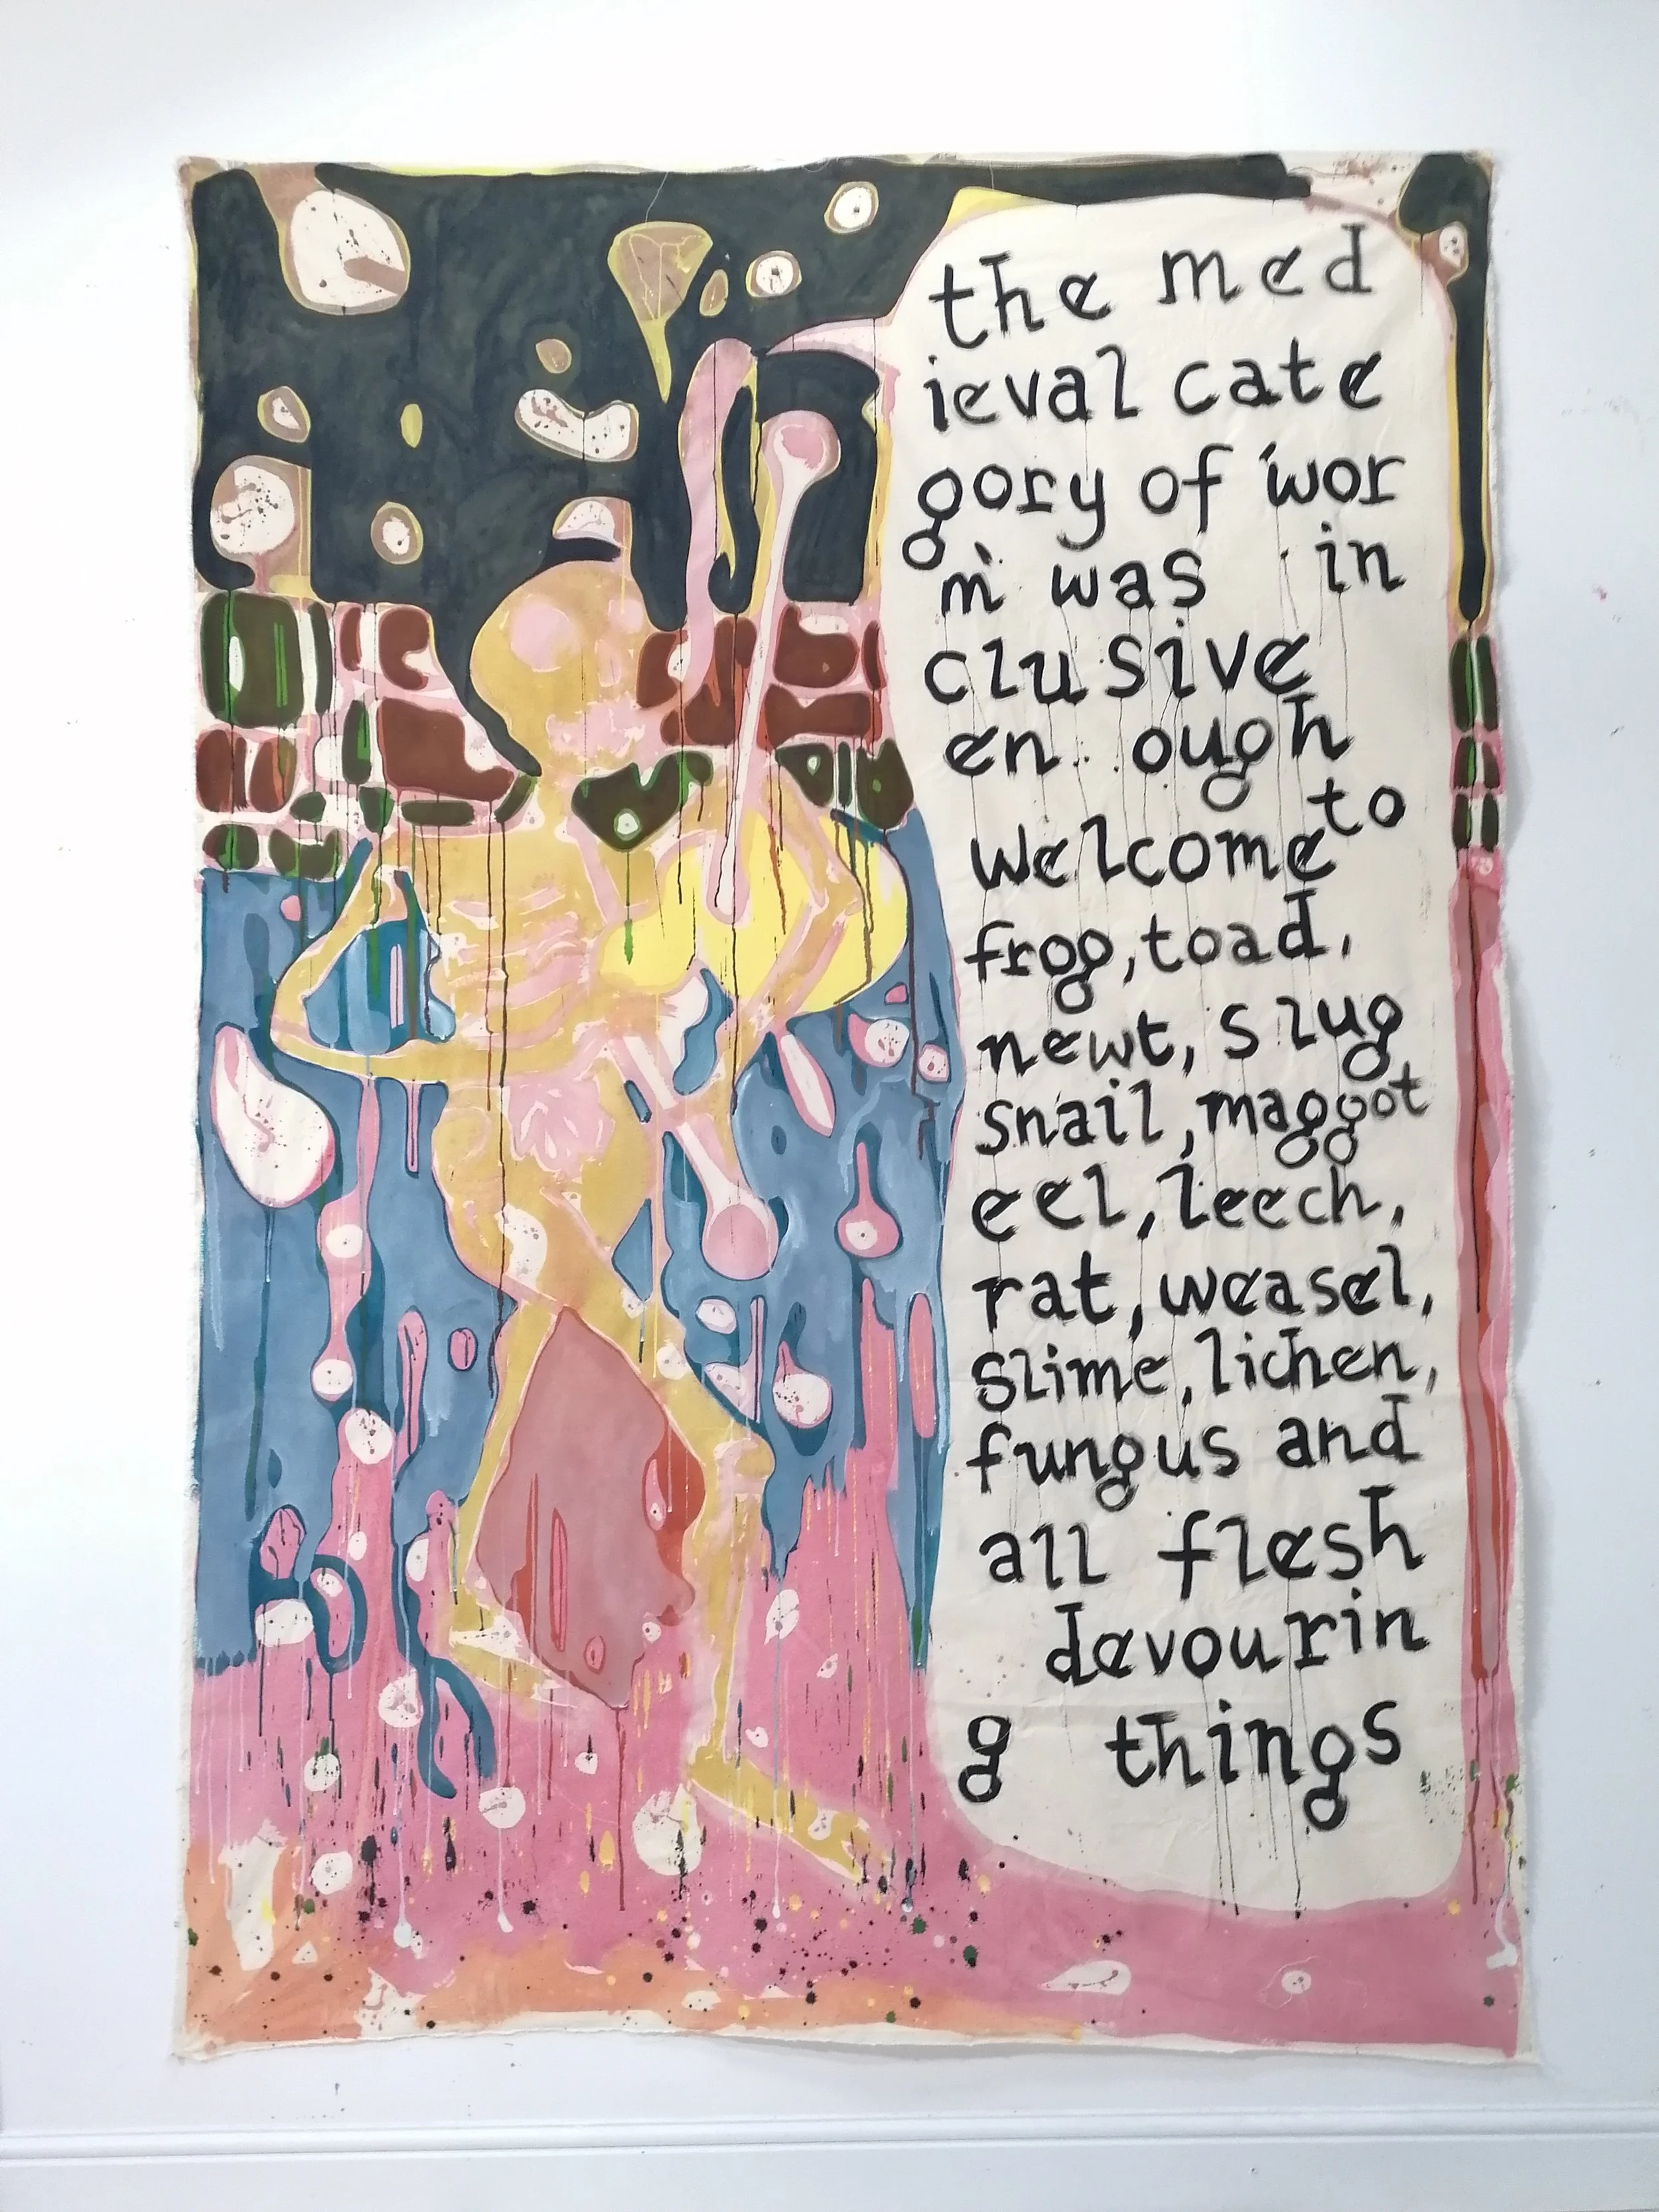 the med
ieval cate
gory of wor
m was in
clusive
en ough
welcome to
frog, toad,
newt, slug
snail, maggot
eel, leech,
rat, weasel,
slime, lichen,
fungus and
all flesh
devourin
g things